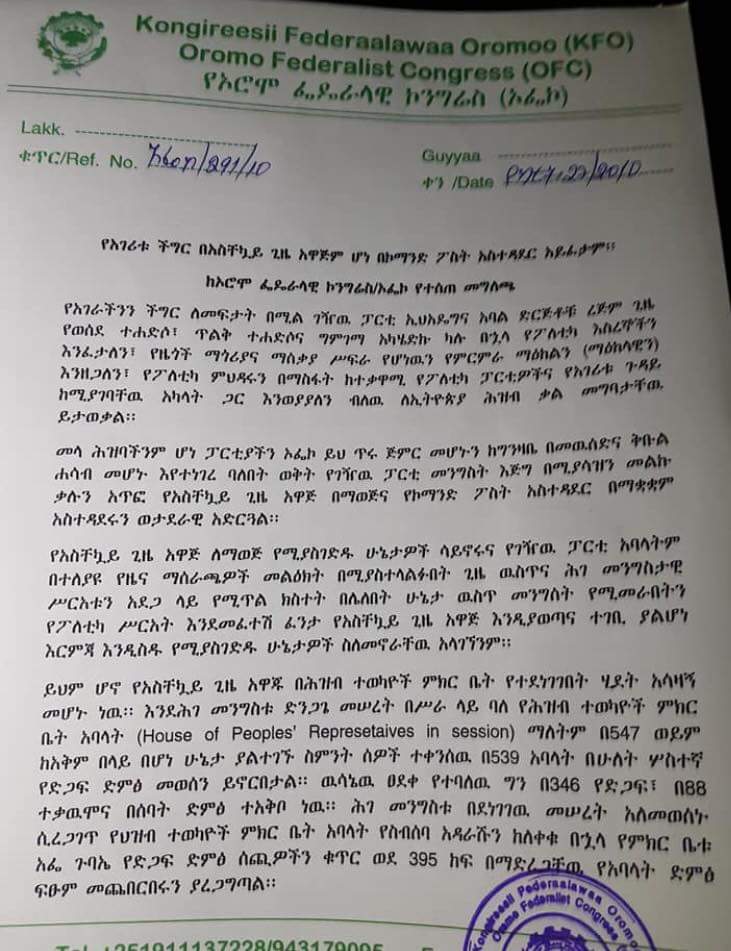 Kongireesii Federaalawaa Oromoo (KFO)
Oromo Federalist Congress (OFC)
የኦሮሞ ፌዴራላዊ ኮንግሬስ (ኦፌኮ)
Lakk.
ቁጥር/Ref. No. /291/10
Guyyaa
ቀን /Date 22/2010
የአገሪቱ ችግር በአስቸኳይ ጊዜ አዋጅም ሆነ በኮማንድ ፖስት አስተዳደር አይፈታም፡፡
ከኦሮሞ ፌዴራላዊ ኮንግሬስ/ኦፌኮ የተሰጠ መግለጫ
የአገራችንን ችግር ለመፍታት በሚል ገዥዉ ፓርቲ ኢህአዴግና አባል ድርጅቶቹ ረጅም ጊዜ
የወሰደ ተሐድሶ፣ ጥልቅ ተሐድሶና ግምገማ አካሄድኩ ካሉ በኋላ የፖለቲካ እስረኞችን
እንፈታለን፣ የዜጎች ማጎሪያና ማሰቃያ ሥፍራ የሆነዉን የምርምራ ማዕከልን (ማዕከላዊን)
እንዘጋለን፣ የፖለቲካ ምህዳሩን በማስፋት ከተቃዋሚ የፖለቲካ ፓርቲዎችና የአገሪቱ ጉዳይ
ከሚያገባቸዉ አካላት ጋር እንወያያለን ብለዉ ለኢትዮጵያ ሕዝብ ቃል መግባታቸዉ
ይታወቃል፡፡
መላ ሕዝባችንም ሆነ ፓርቲያችን ኦፌኮ ይህ ጥሩ ጅምር መሆኑን ከግንዛቤ በመዉሰድና ቅቡል
ሐሳብ መሆኑ እየተነገረ ባለበት ወቅት የገዥዉ ፓርቲ መንግስት እጅግ በሚያሳዝን መልኩ
ቃሉን አጥፎ የአስቸኳይ ጊዜ አዋጅ በማወጅና የኮማንድ ፖስት አስተዳደር በማቋቋም
አስተዳደሩን ወታደራዊ አድርጓል፡፡
የአስቸኳይ ጊዜ አዋጅ ለማወጅ የሚያስገድዱ ሁኔታዎች ሳይኖሩና የገዥዉ ፓርቲ አባላትም
በተለያዩ የዜና ማሰራጫዎች መልዕክት በሚያስተላልፉበት ጊዜ ዉስጥና ሕገ መንግስታዊ
ሥርአቱን አደጋ ላይ የሚጥል ክስተት በሌለበት ሁኔታ ዉስጥ መንግስት የሚመራበትን
የፖለቲካ ሥርአት እንደመፈተሽ ፈንታ የአስቸኳይ ጊዜ አዋጅ እንዲያወጣና ተገቢ ያልሆነ
እርምጃ እንዲስዱ የሚያስገድዱ ሁኔታዎች ስለመኖራቸዉ አላገኘንም፡፡
ይህም ሆኖ የአስቸኳይ ጊዜ አዋጁ በሕዝብ ተወካዮች ምክር ቤት የተደነገገበት ሂደት አሳዛኝ
መሆኑ ነዉ፡፡ እንደሕገ መንግስቱ ድንጋጌ መሠረት በሥራ ላይ ባለ የሕዝብ ተወካዮች ምክር
ቤት አባላት (House of Peoples' Represetaives in session) ማለትም በ547 ወይም
ከአቅም በላይ በሆነ ሁኔታ ያልተገኙ ስምንት ሰዎች ተቀንሰዉ በ539 አባላት በሁለት ሦስተኛ
የድጋፍ ድምፅ መወሰን ይኖርበታል፡፡ ዉሳኔዉ ፀደቀ የተባለዉ ግን በ346 የድጋፍ፣ በ88
ተቃዉሞና በሰባት ድምፅ ተአቅቦ ነዉ፡፡ ሕገ መንግስቱ በደነገገዉ መሠረት አለመወሰኑ
ሲረጋገጥ የህዝብ ተወካዮች ምክር ቤት አባላት የስብሰባ አዳራሹን ከለቀቁ በኋላ የምክር ቤቱ
አፌ ጉባኤ የድጋፍ ድምፅ ሰጪዎችን ቁጥር ወደ 395 ከፍ በማድረጋቸዉ የአባላት ድምፅ
ፍፁም መጨበርበሩን ያረጋግጣል፡፡
Kongireesii Federaalawaa Oromoo
Oromo Federalist Congress
Tel +251911137228/943179095